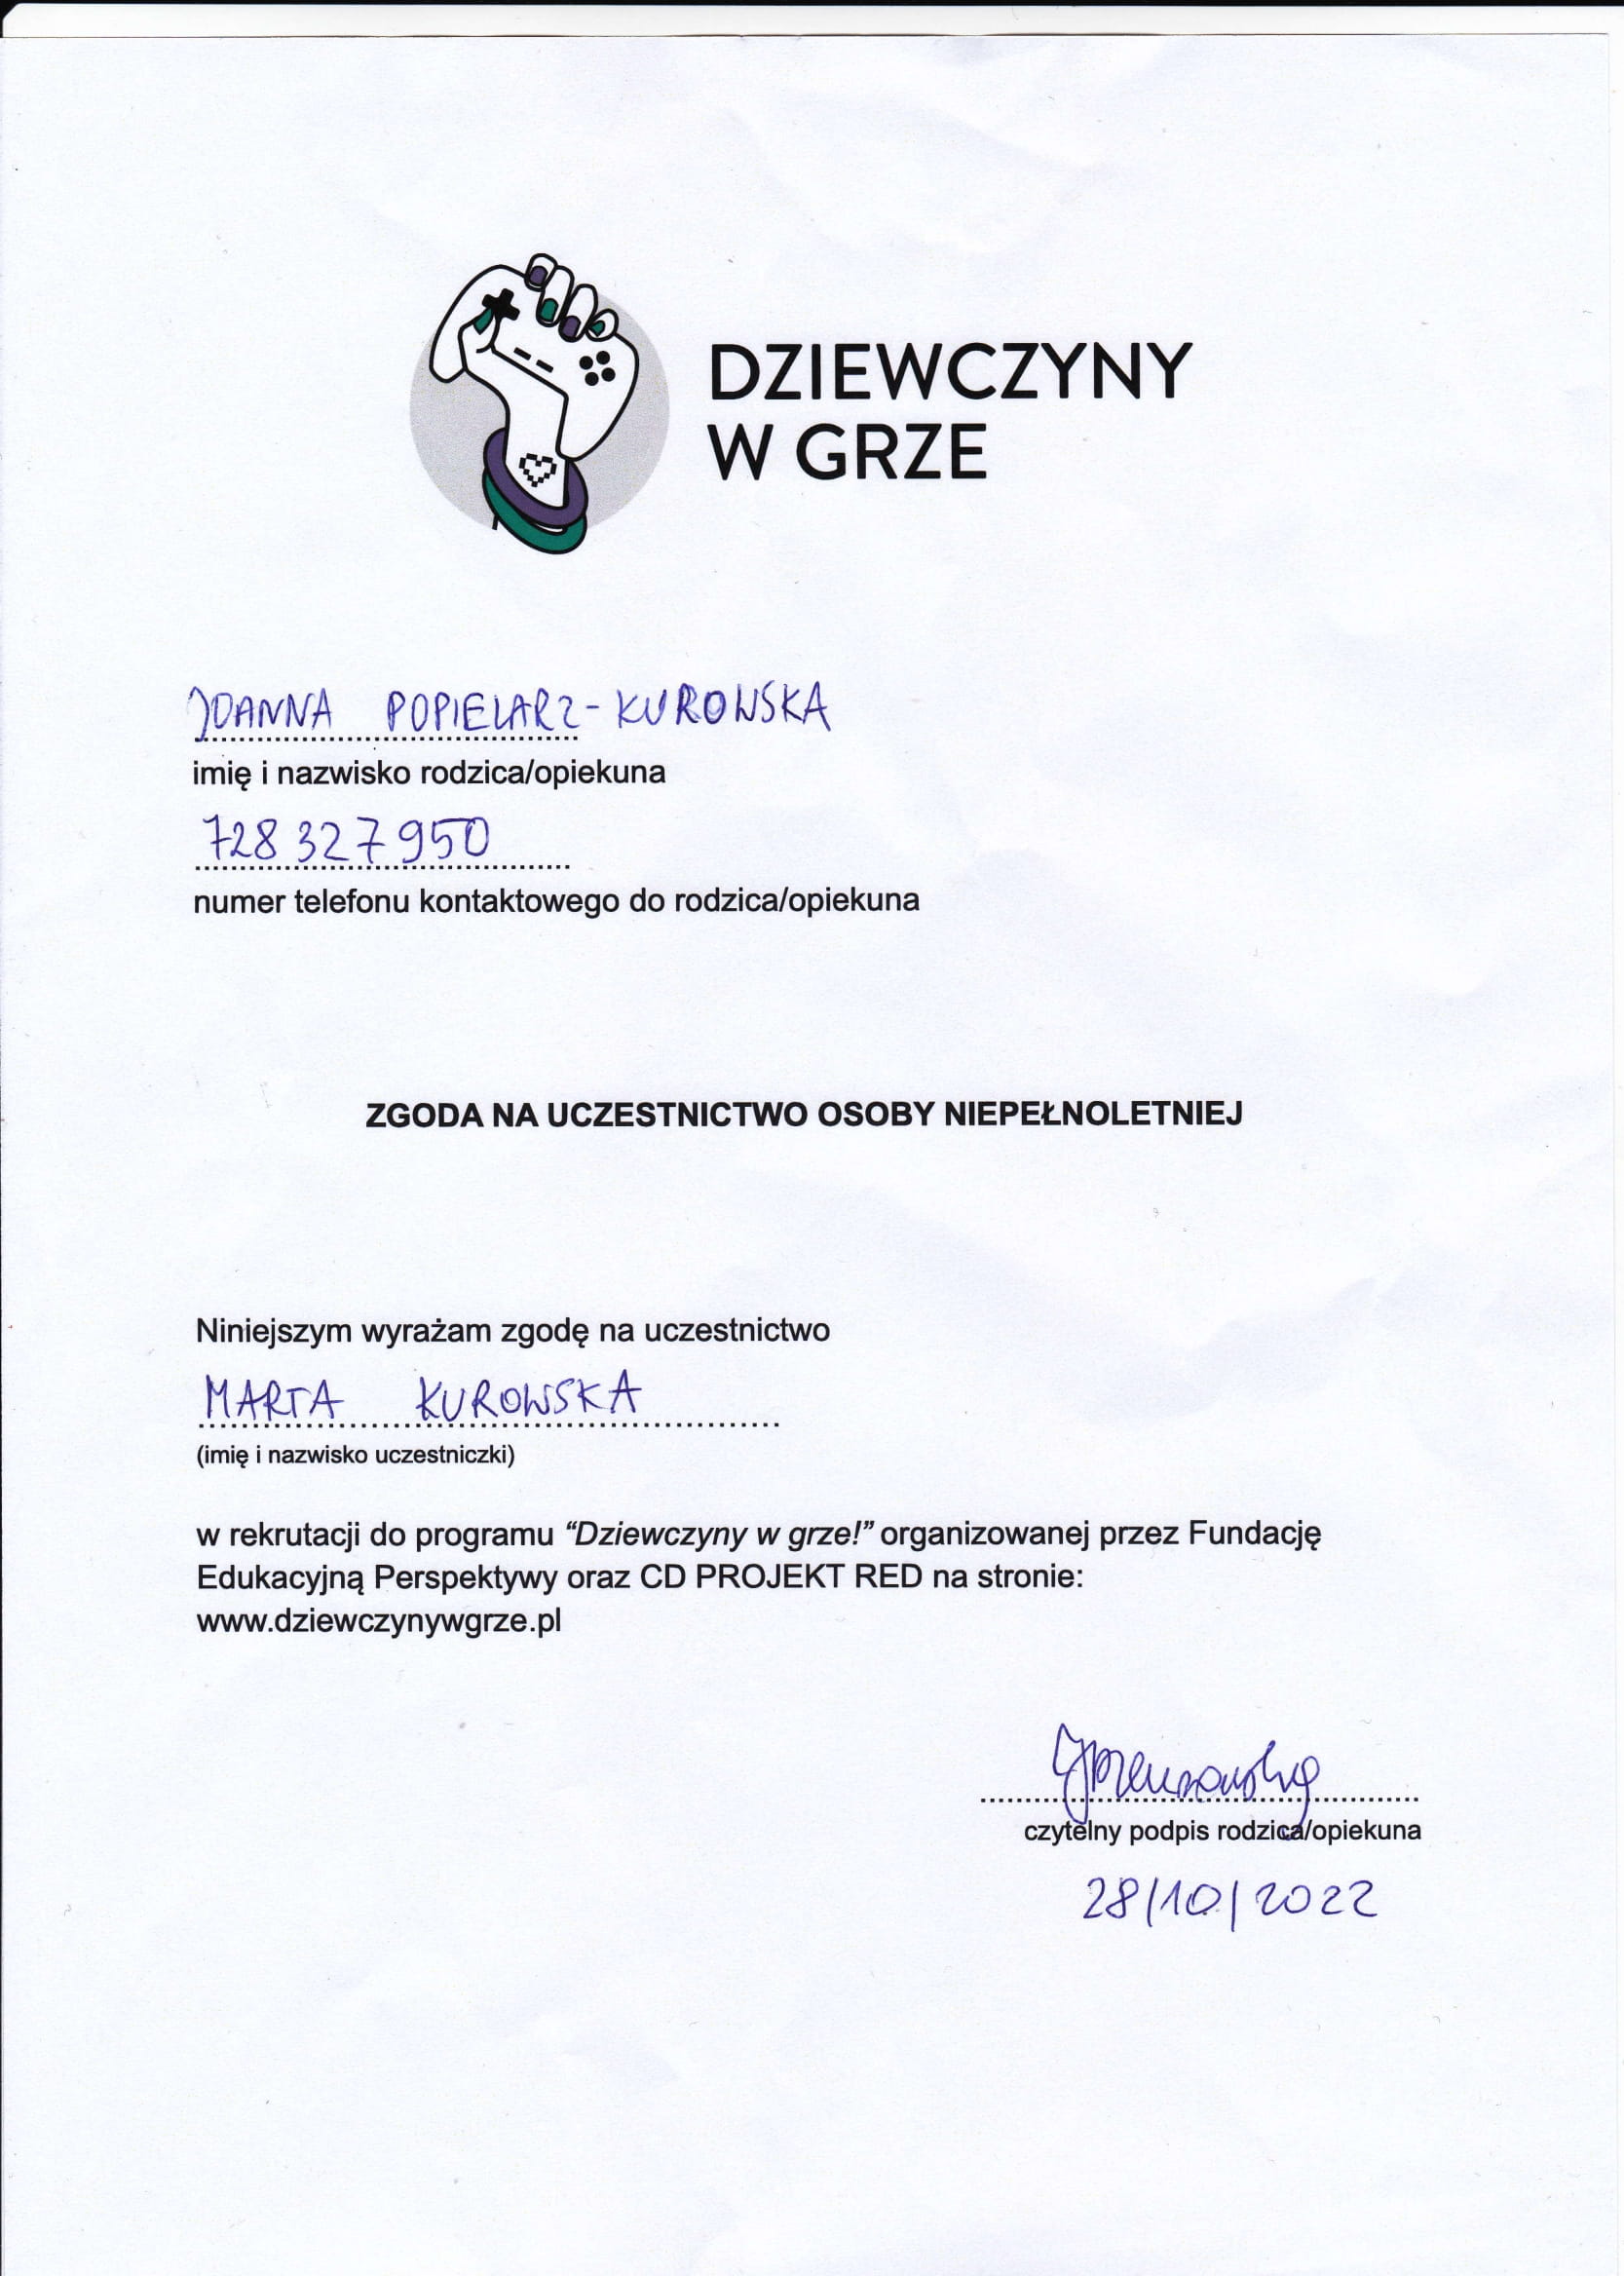 DZIEWCZYNY
W GRZE
JOANNA POPIELARZ-KUROWSKA
imię i nazwisko rodzica/opiekuna
728 327 950
numer telefonu kontaktowego do rodzica/opiekuna
ZGODA NA UCZESTNICTWO OSOBY NIEPEŁNOLETNIEJ
Niniejszym wyrażam zgodę na uczestnictwo
MARTA KUROWSKA
(imię i nazwisko uczestniczki)
w rekrutacji do programu “Dziewczyny w grze!” organizowanej przez Fundację
Edukacyjną Perspektywy oraz CD PROJEKT RED na stronie:
www.dziewczynywgrze.pl
czytelny podpis rodzica/opiekuna
28/10/2022